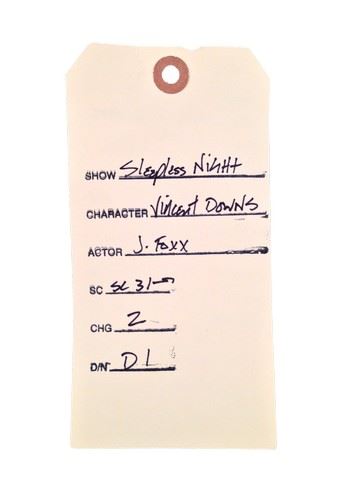 SHOW Sleepless Night
CHARACTER Vincent Downs
ACTOR J. Foxx
SC SC 31-
CHG 2
D/N D 1